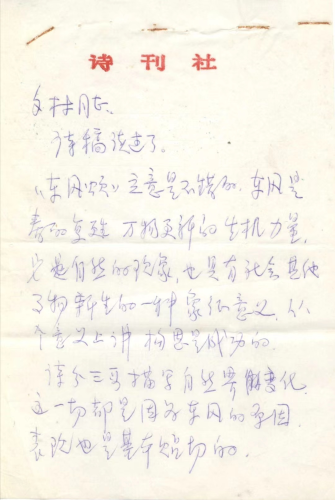 诗刊社
文林同志.
诗稿读过了.
《东风颂》立意是不错的. 东风是
春的象征 万物更新的生机力量,
它是自然的现象, 也具有社会其他
事物新生的一种象征意义, 从
个意义上讲 构思是成功的.
诗分三哥描写自然界的变化
这一切都是因为东风的原因.
表现也是基本贴切的.